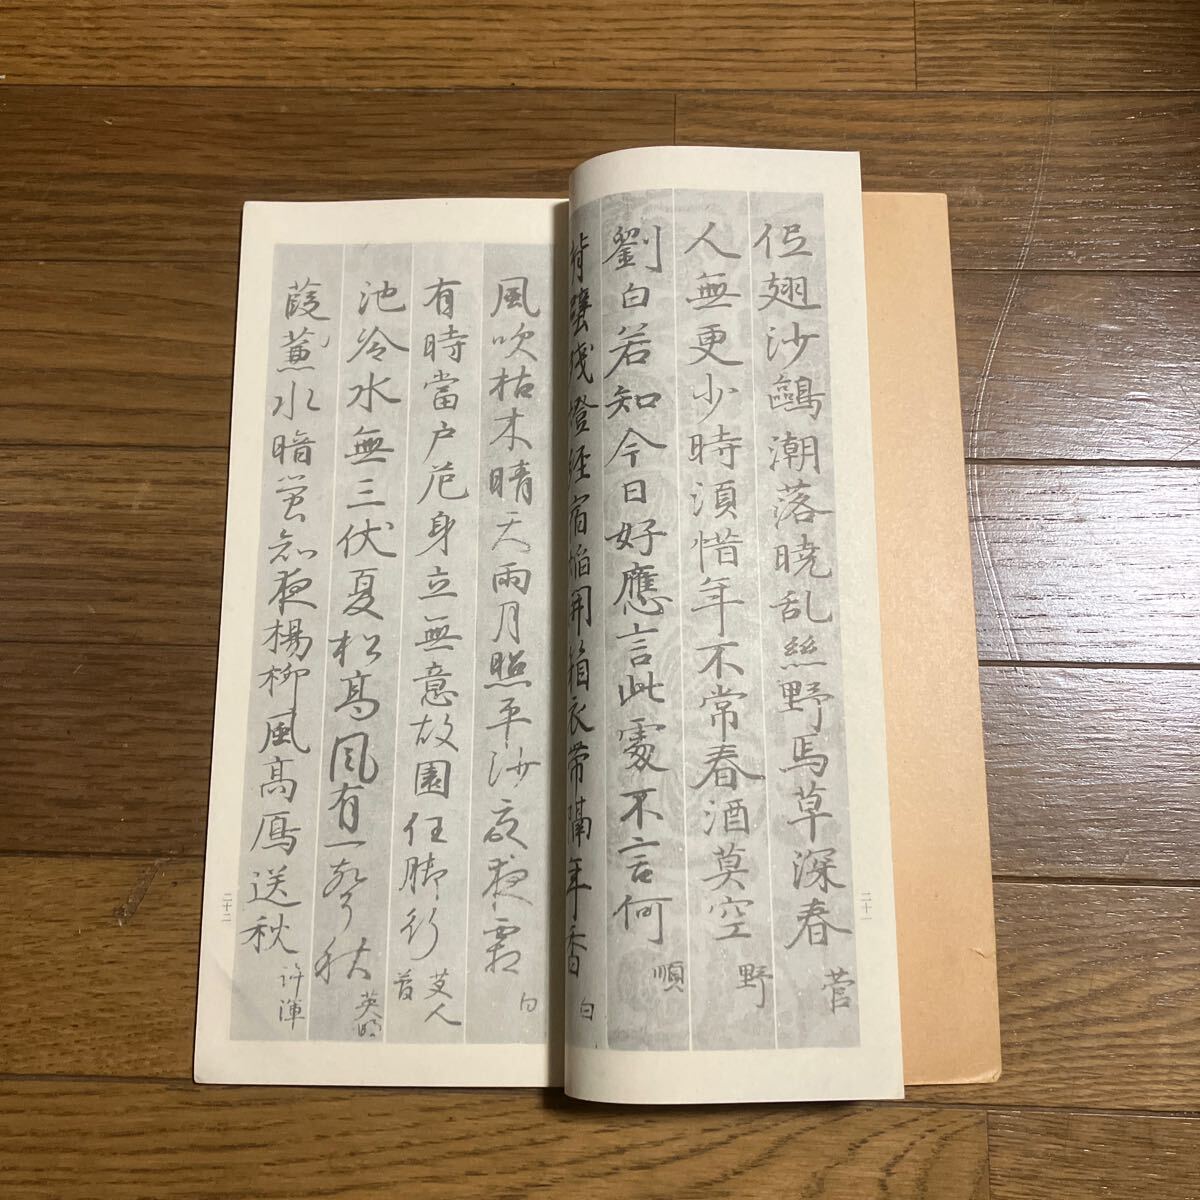 低翅沙鷗潮落暁乱絲野馬草深春 菅
人無更少時須惜年不常春酒莫空 野
劉白若知今日好應言此處不言何 順
背壁残燈経宿焔開箱衣帯隔年香 白
二十一
風吹枯木晴天雨月照平沙夏夜霜 白
有時當戸危身立無意故園任脚行 艾人
池冷水無三伏夏松高風有一聲秋 英明
葭蒹水暗蛍知夜楊柳風高鴈送秋 許渾
二十二